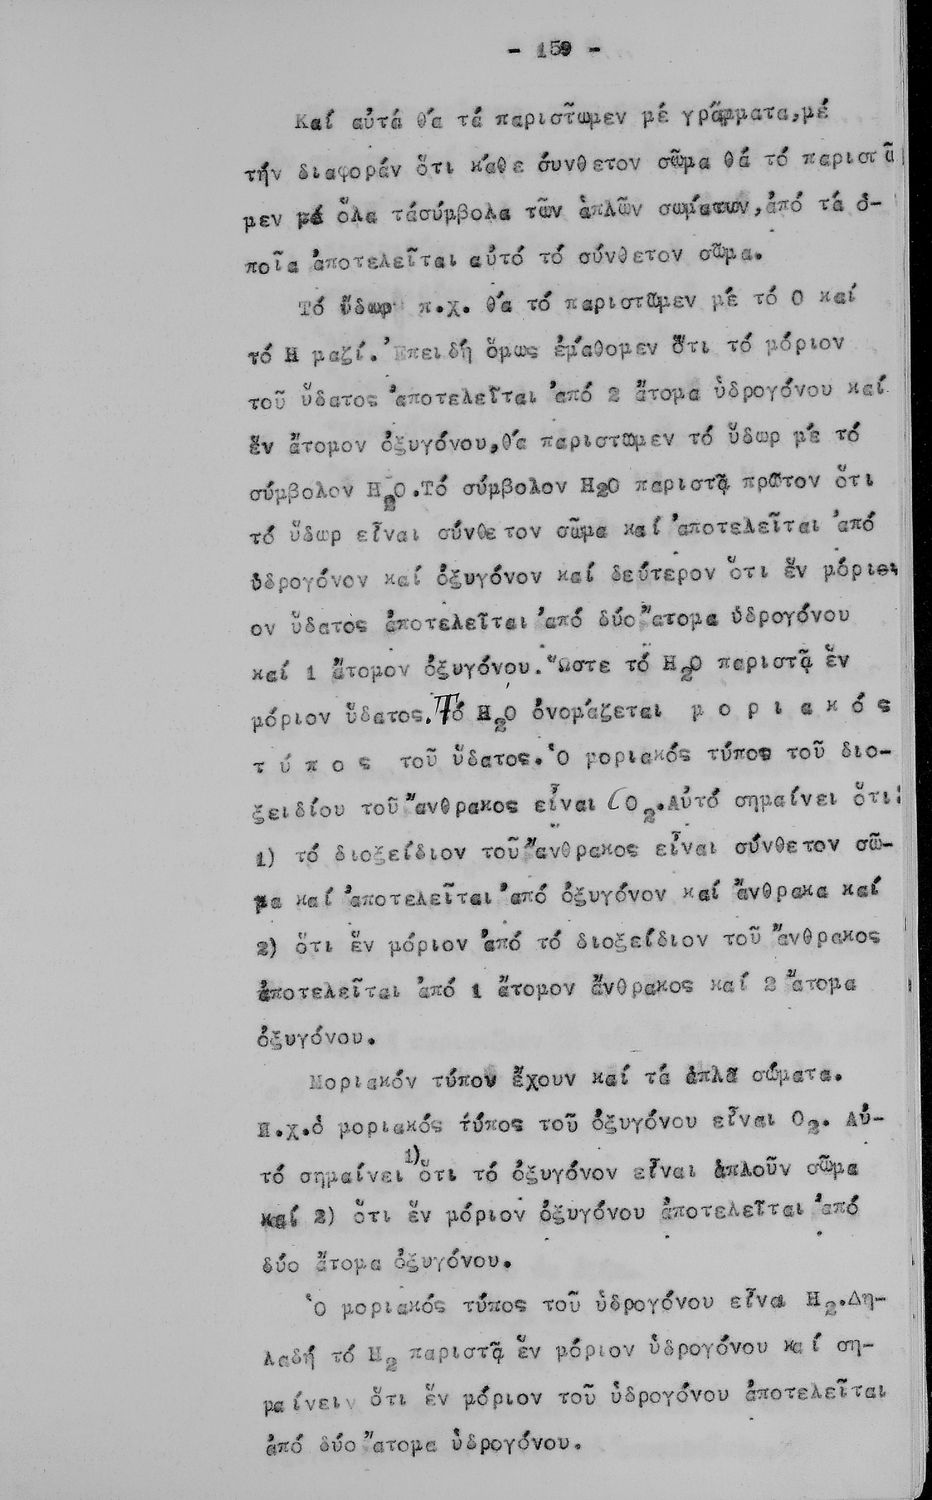 - 159 -
Καί αὐτά θά τά παριστῶμεν μέ γράμματα,μέ
τήν διαφοράν ὅτι κάθε σύνθετον σῶμα θά τό παριστᾶ
μεν μέ ὅλα τάσύμβολα τῶν ἁπλῶν σωμάτων,ἀπό τά ὁ-
ποῖα ἀποτελεῖται αὐτό τό σύνθετον σῶμα.
Τό ὕδωρ π.χ. θά τό παριστῶμεν μέ τό Ο καί
τό Η μαζί.Ἐπειδή ὅμως ἐμάθομεν ὅτι τό μόριον
τοῦ ὕδατος ἀποτελεῖται ἀπό 2 ἄτομα ὑδρογόνου καί
ἕν ἄτομον ὀξυγόνου,θά παριστῶμεν τό ὕδωρ μέ τό
σύμβολον H₂O.Τό σύμβολον H2O παριστᾷ πρῶτον ὅτι
τό ὕδωρ εἶναι σύνθετον σῶμα καί ἀποτελεῖται ἀπό
ὑδρογόνον καί ὀξυγόνον καί δεύτερον ὅτι ἕν μόρι
ον ὕδατος ἀποτελεῖται ἀπό δύο ἄτομα ὑδρογόνου
καί 1 ἄτομον ὀξυγόνου.Ὥστε τό H₂O παριστᾷ ἕν
μόριον ὕδατος.Τό H₂O ὀνομάζεται μ ο ρ ι α κ ό ς
τ ύ π ο ς τοῦ ὕδατος.Ὁ μοριακός τύπος τοῦ διο-
ξειδίου τοῦ ἄνθρακος εἶναι CO₂.Αὐτό σημαίνει ὅτι:
1) τό διοξείδιον τοῦ ἄνθρακος εἶναι σύνθετον σῶ-
μα καί ἀποτελεῖται ἀπό ὀξυγόνον καί ἄνθρακα καί
2) ὅτι ἕν μόριον ἀπό τό διοξείδιον τοῦ ἄνθρακος
ἀποτελεῖται ἀπό 1 ἄτομον ἄνθρακος καί 2 ἄτομα
ὀξυγόνου.
Μοριακόν τύπον ἔχουν καί τά ἁπλᾶ σώματα.
Π.χ.ὁ μοριακός τύπος τοῦ ὀξυγόνου εἶναι O₂. Αὐ-
τό σημαίνει 1) ὅτι τό ὀξυγόνον εἶναι ἁπλοῦν σῶμα
καί 2) ὅτι ἕν μόριον ὀξυγόνου ἀποτελεῖται ἀπό
δύο ἄτομα ὀξυγόνου.
Ὁ μοριακός τύπος τοῦ ὑδρογόνου εἶνα H₂.Δη-
λαδή τό H₂ παριστᾷ ἕν μόριον ὑδρογόνου καί ση-
μαίνειν ὅτι ἕν μόριον τοῦ ὑδρογόνου ἀποτελεῖται
ἀπό δύο ἄτομα ὑδρογόνου.